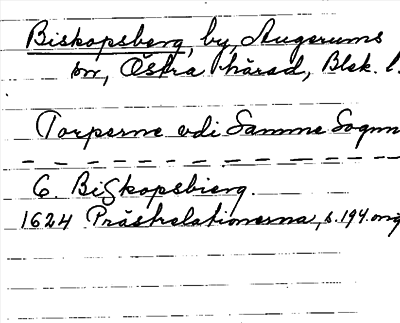 Biskopsberg, by, Augerums
sn, Östra härad, Blek. l.
Torperne udi Samme Sognn
6. Biskopsbierg.
1624 Prästrelationerna, s. 194. orig